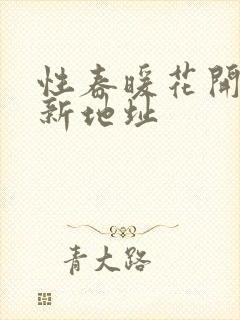 性春暖花開
新地址
青大路